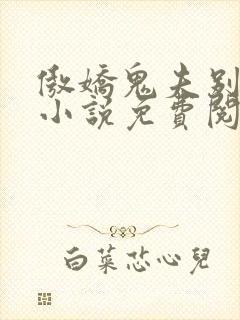 傲嬌鬼夫別
小說免費閱
白菜芯心兒